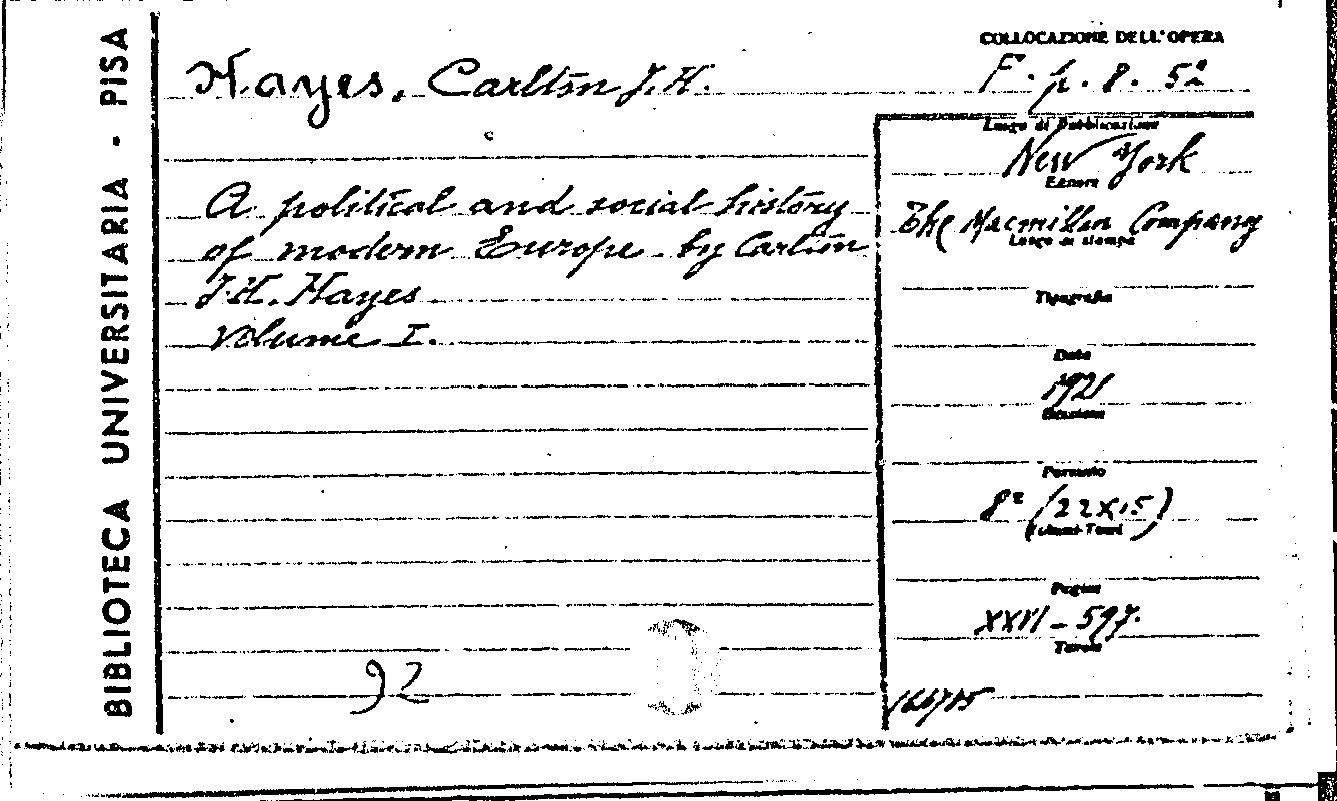 BIBLIOTECA UNIVERSITARIA - PISA
COLLOCAZIONE DELL'OPERA
Hayes, Carlton J.H.
F. p. 8. 52
Luogo di Pubblicazione
New York
Editore
A political and social history
of modern Europe by Carlton
J.H. Hayes
Volume I.
The Macmillan Company
Luogo di stampa
Tipografia
Data
1921
Edizione
Formato
8° (22x15)
Volumi-Tomi
Pagine
XXVI - 597.
Tavole
92